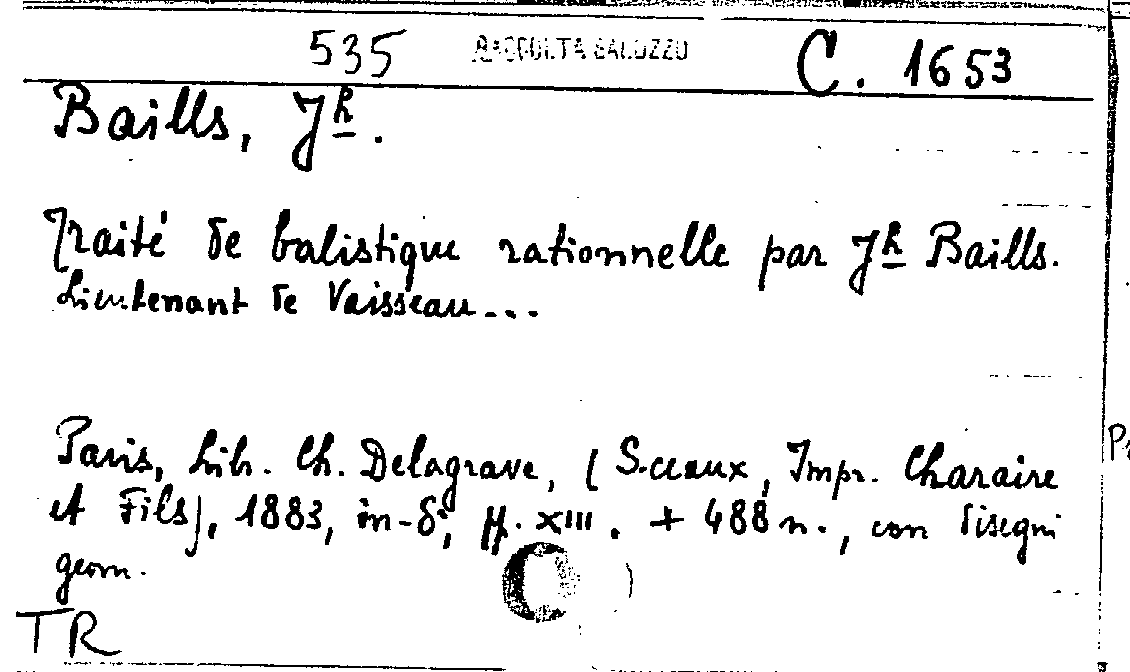 535 RACCOLTA SALUZZO C. 1653
Baills, Jh.
Traité de balistique rationnelle par Jh Baills.
Lieutenant de Vaisseau...
Paris, Lib. Ch. Delagrave, (Sceaux, Impr. Charaire
et Fils), 1883, in-8°, pp. XIII. + 488 n., con disegni
geom.
O
TR